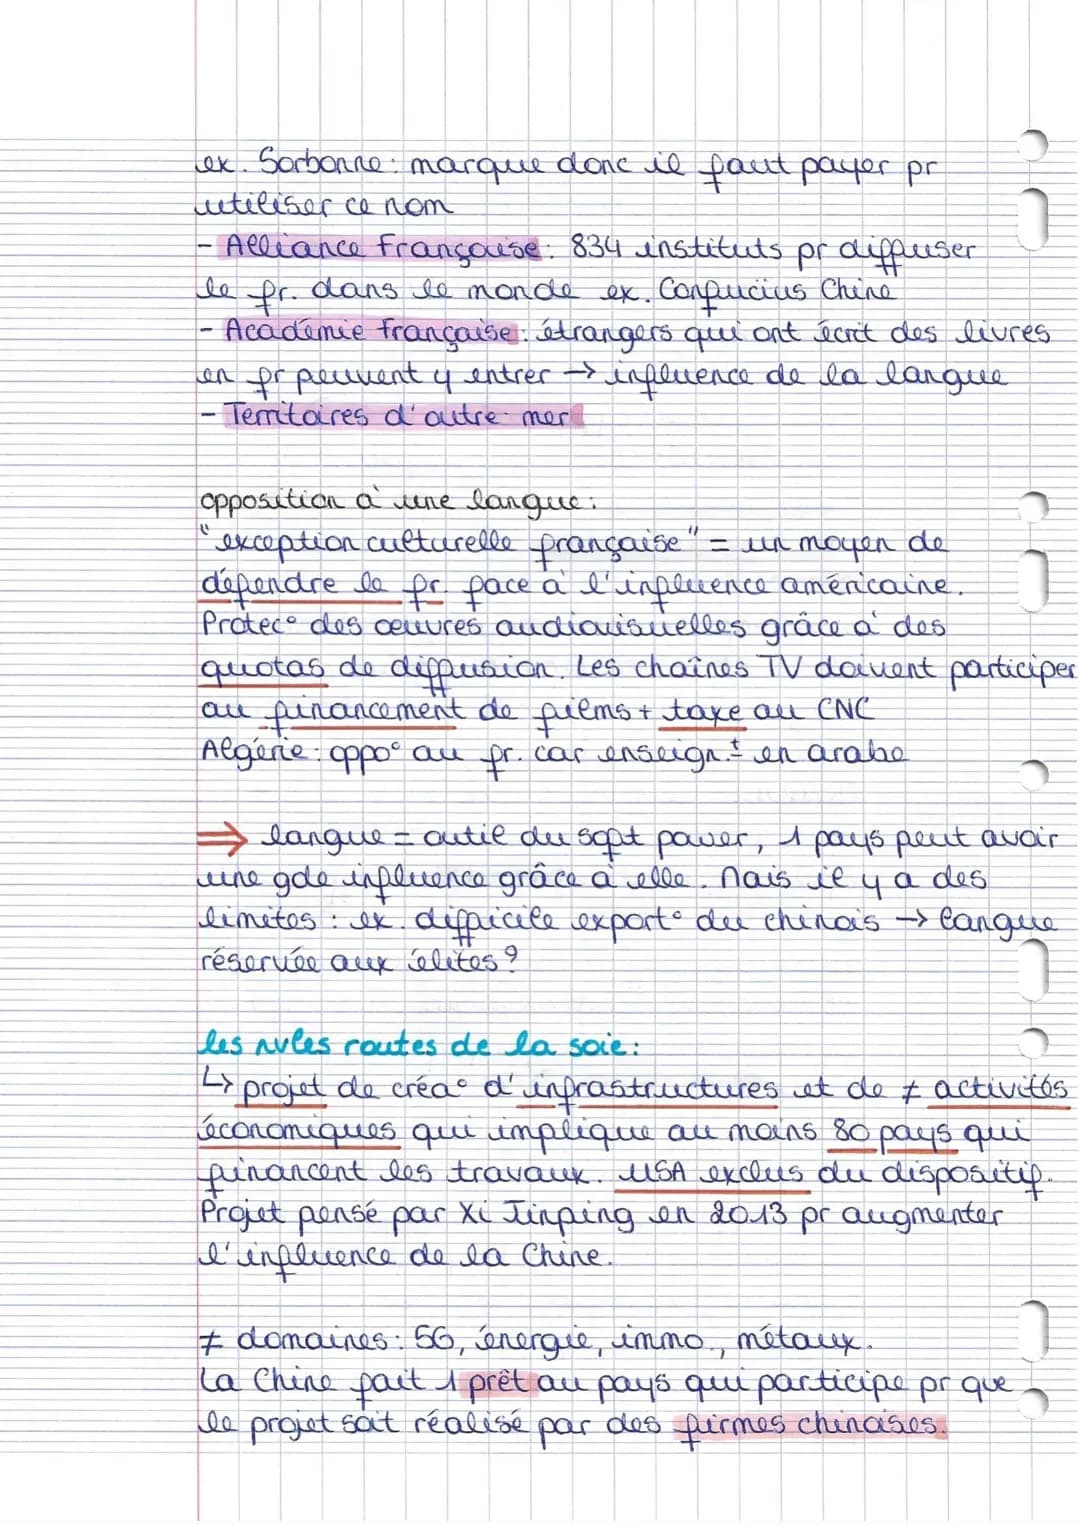 ex. Sorbonne : marque donc il faut payer pr
utiliser ce nom
- Alliance Française : 834 instituts pr diffuser
le fr. dans le monde ex. Confucius Chine
- Académie française : étrangers qui ont écrit des livres
en fr peuvent y entrer → influence de la langue
- Territoires d'outre-mer
opposition à une langue :
"exception culturelle française" = un moyen de
défendre le fr. face à l'influence américaine.
Protec° des œuvres audiovisuelles grâce à des
quotas de diffusion. Les chaînes TV doivent participer
au financement de films + taxe au CNC
Algérie : oppo° au fr. car enseign.t en arabe
⇒ langue = outil du soft power, 1 pays peut avoir
une gde influence grâce à elle. Mais il y a des
limites : ex. difficile export° du chinois → langue
réservée aux élites ?
les nvles routes de la soie :
↳ projet de créa° d'infrastructures et de ≠ activités
économiques qui implique au moins 80 pays qui
financent les travaux. USA exclus du dispositif.
Projet pensé par Xi Jinping en 2013 pr augmenter
l'influence de la Chine.
≠ domaines : 5G, énergie, immo., métaux.
La Chine fait 1 prêt au pays qui participe pr que
le projet soit réalisé par des firmes chinoises.